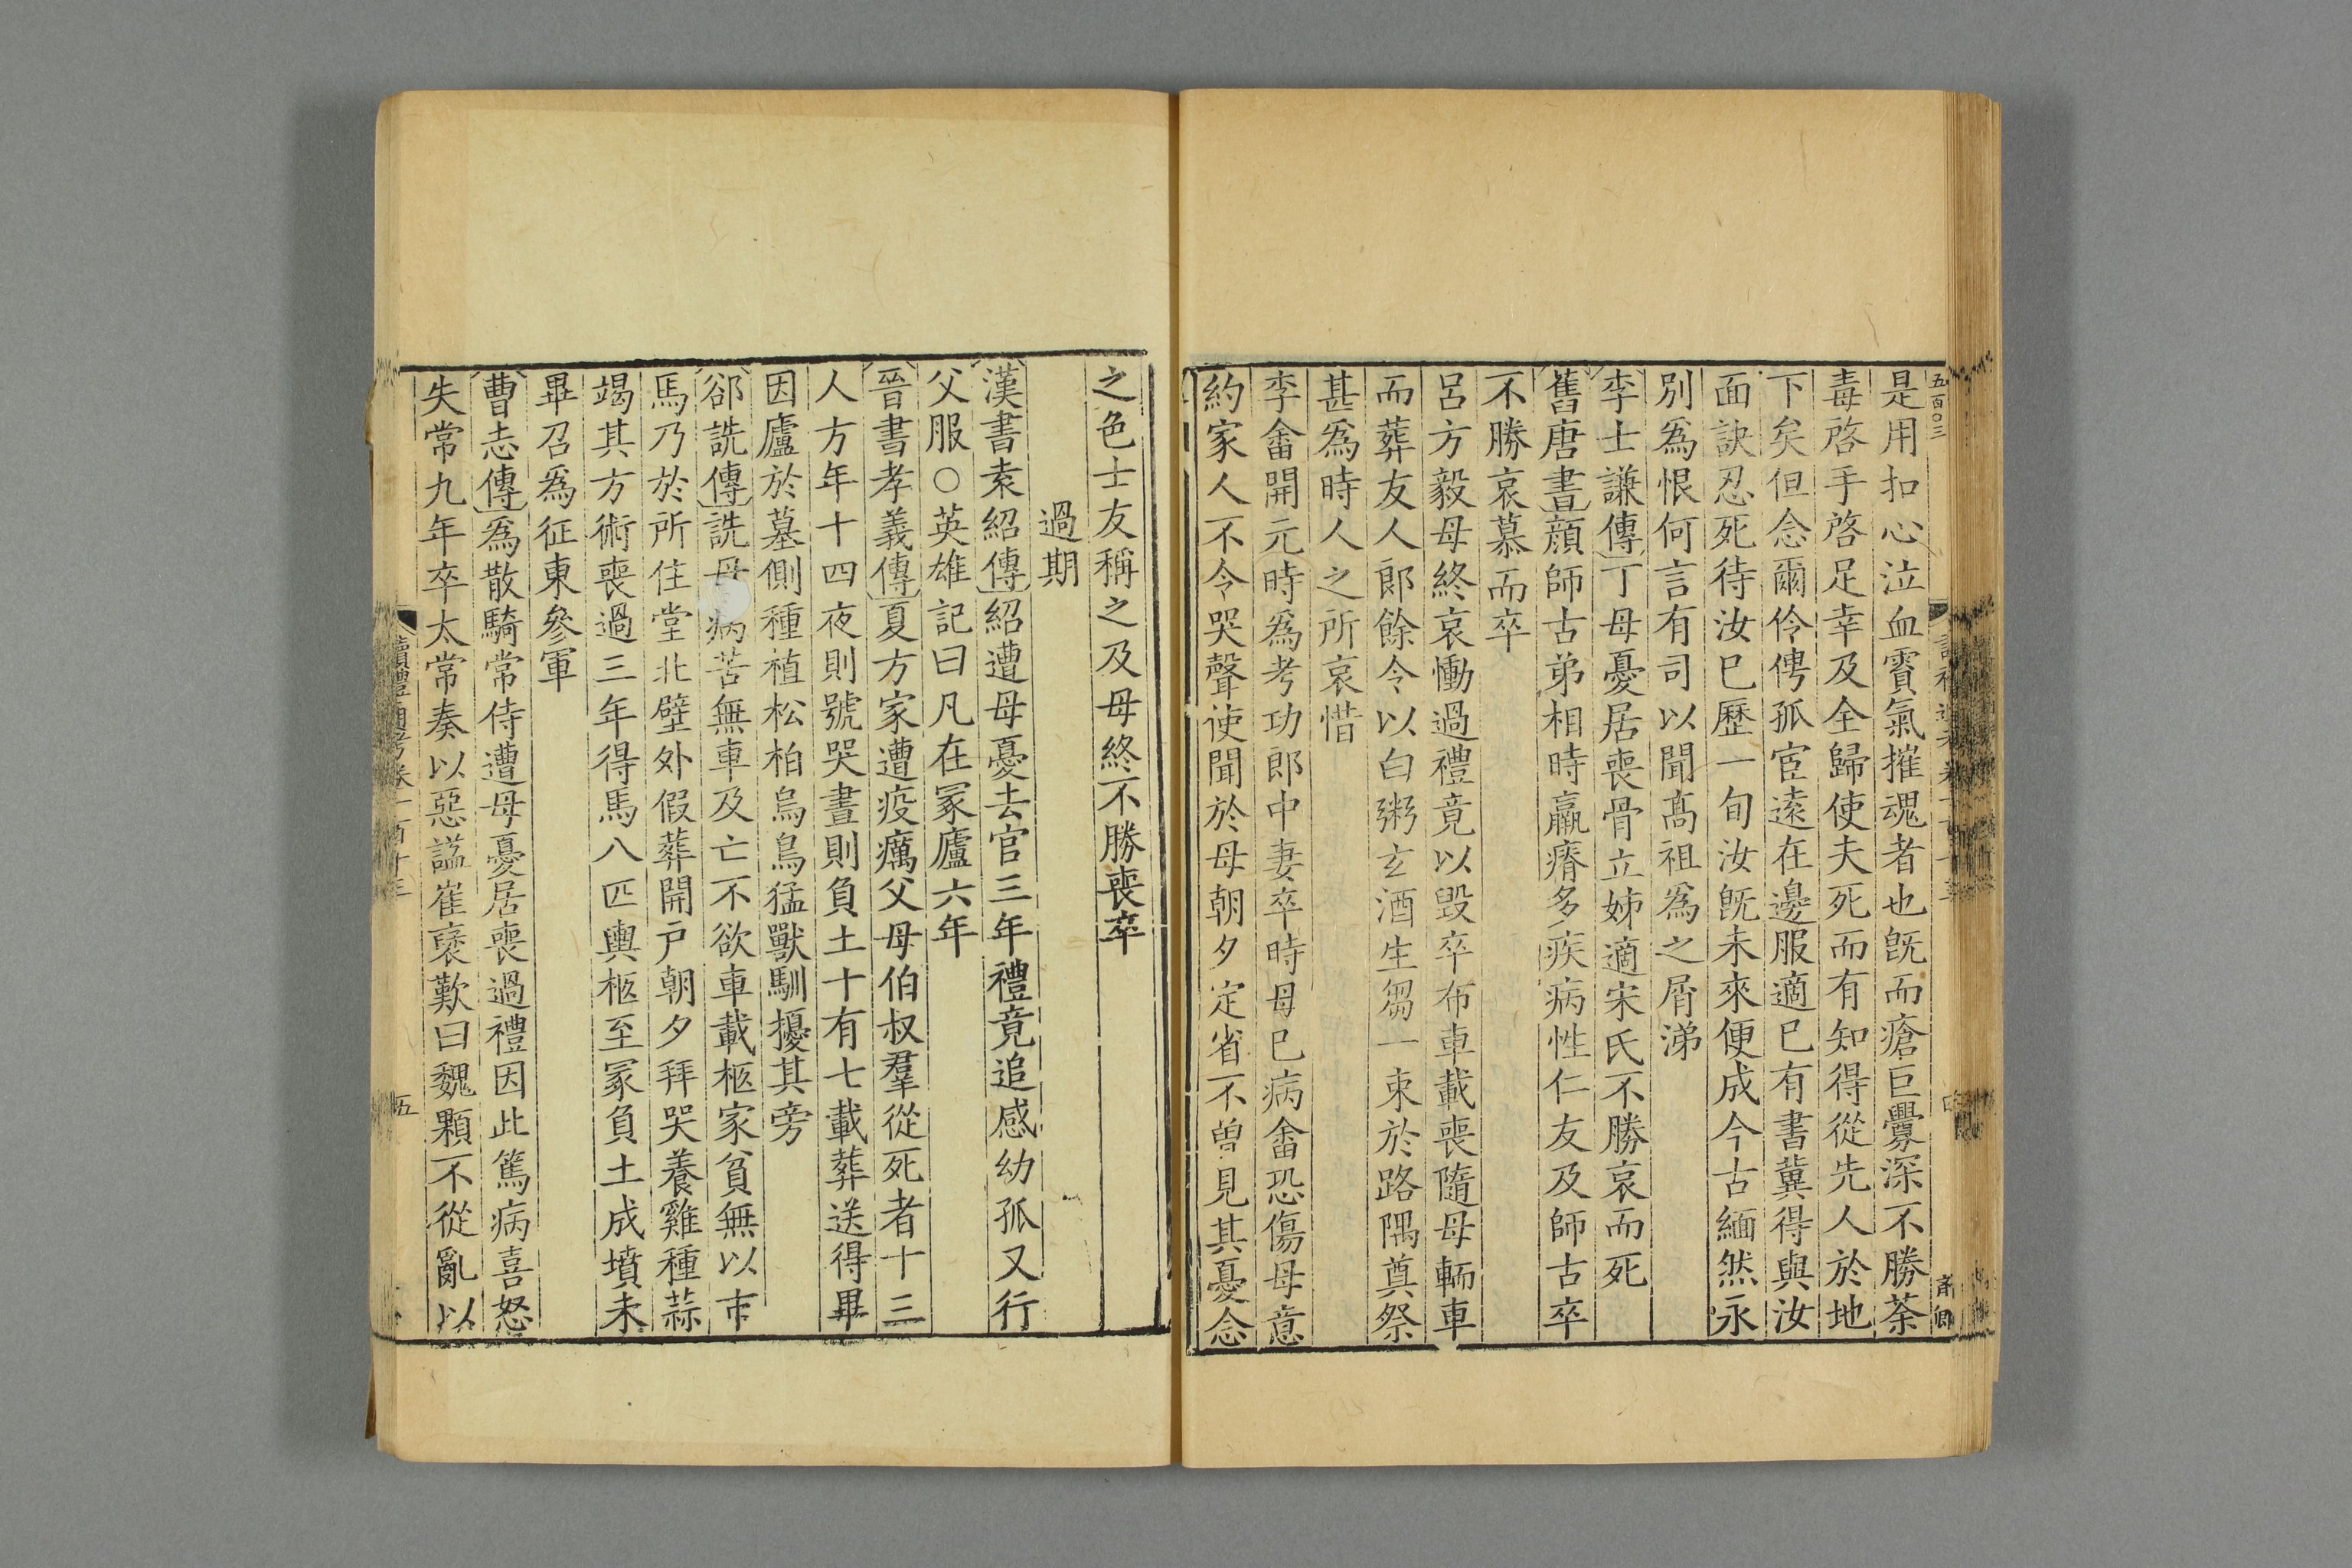 五百〇三
是用扣心泣血賷氣摧魂者也旣而瘡巨釁深不勝荼
毒啓手啓足幸及全歸使夫死而有知得從先人於地
下矣但念爾伶俜孤宦遠在邊服適已有書冀得與汝
面訣忍死待汝已歷一旬汝旣未來便成今古緬然永
別爲恨何言有司以聞髙祖爲之屑涕
李士謙傳丁母憂居喪骨立姊適宋氏不勝哀而死
舊唐書顔師古弟相時羸瘠多疾病性仁友及師古卒
不勝哀慕而卒
呂方毅母終哀慟過禮竟以毁卒布車載喪隨母輀車
而葬友人郎餘令以白粥玄酒生芻一束於路隅奠祭
甚爲時人之所哀惜
李畬開元時爲考功郎中妻卒時母已病畬恐傷母意
約家人不令哭聲使聞於母朝夕定省不曽見其憂念
之色士友稱之及母終不勝喪卒
過期
漢書袁紹傳紹遭母憂去官三年禮竟追感幼孤又行
父服〇英雄記曰凡在冢廬六年
晉書孝義傳夏方家遭疫癘父母伯叔羣從死者十三
人方年十四夜則號哭晝則負土十有七載葬送得畢
因廬於墓側種植松柏烏鳥猛獸馴擾其旁
郤詵傳詵母病苦無車及亡不欲車載柩家貧無以市
馬乃於所住堂北壁外假葬開戸朝夕拜哭養雞種蒜
竭其方術喪過三年得馬八匹輿柩至冢負土成墳未
畢召爲征東參軍
曹志傳爲散騎常侍遭母憂居喪過禮因此篤病喜怒
失常九年卒太常奏以惡謚崔褒歎曰魏顆不從亂以
讀禮通考卷一百十三
五